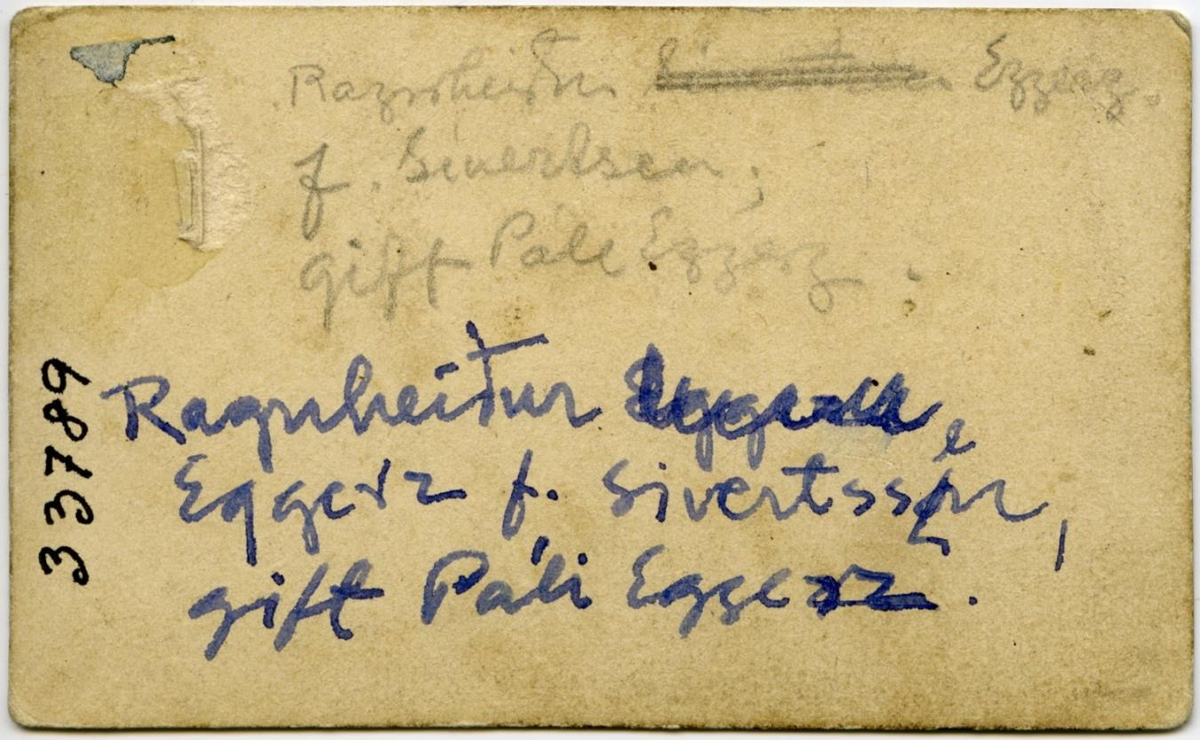 Ragnheiður Eggerz.
f. Sivertsen,
gift Páli Eggerz.
Ragnheiður
Eggerz f. Sivertssen,
gift Páli Eggerz.
33789